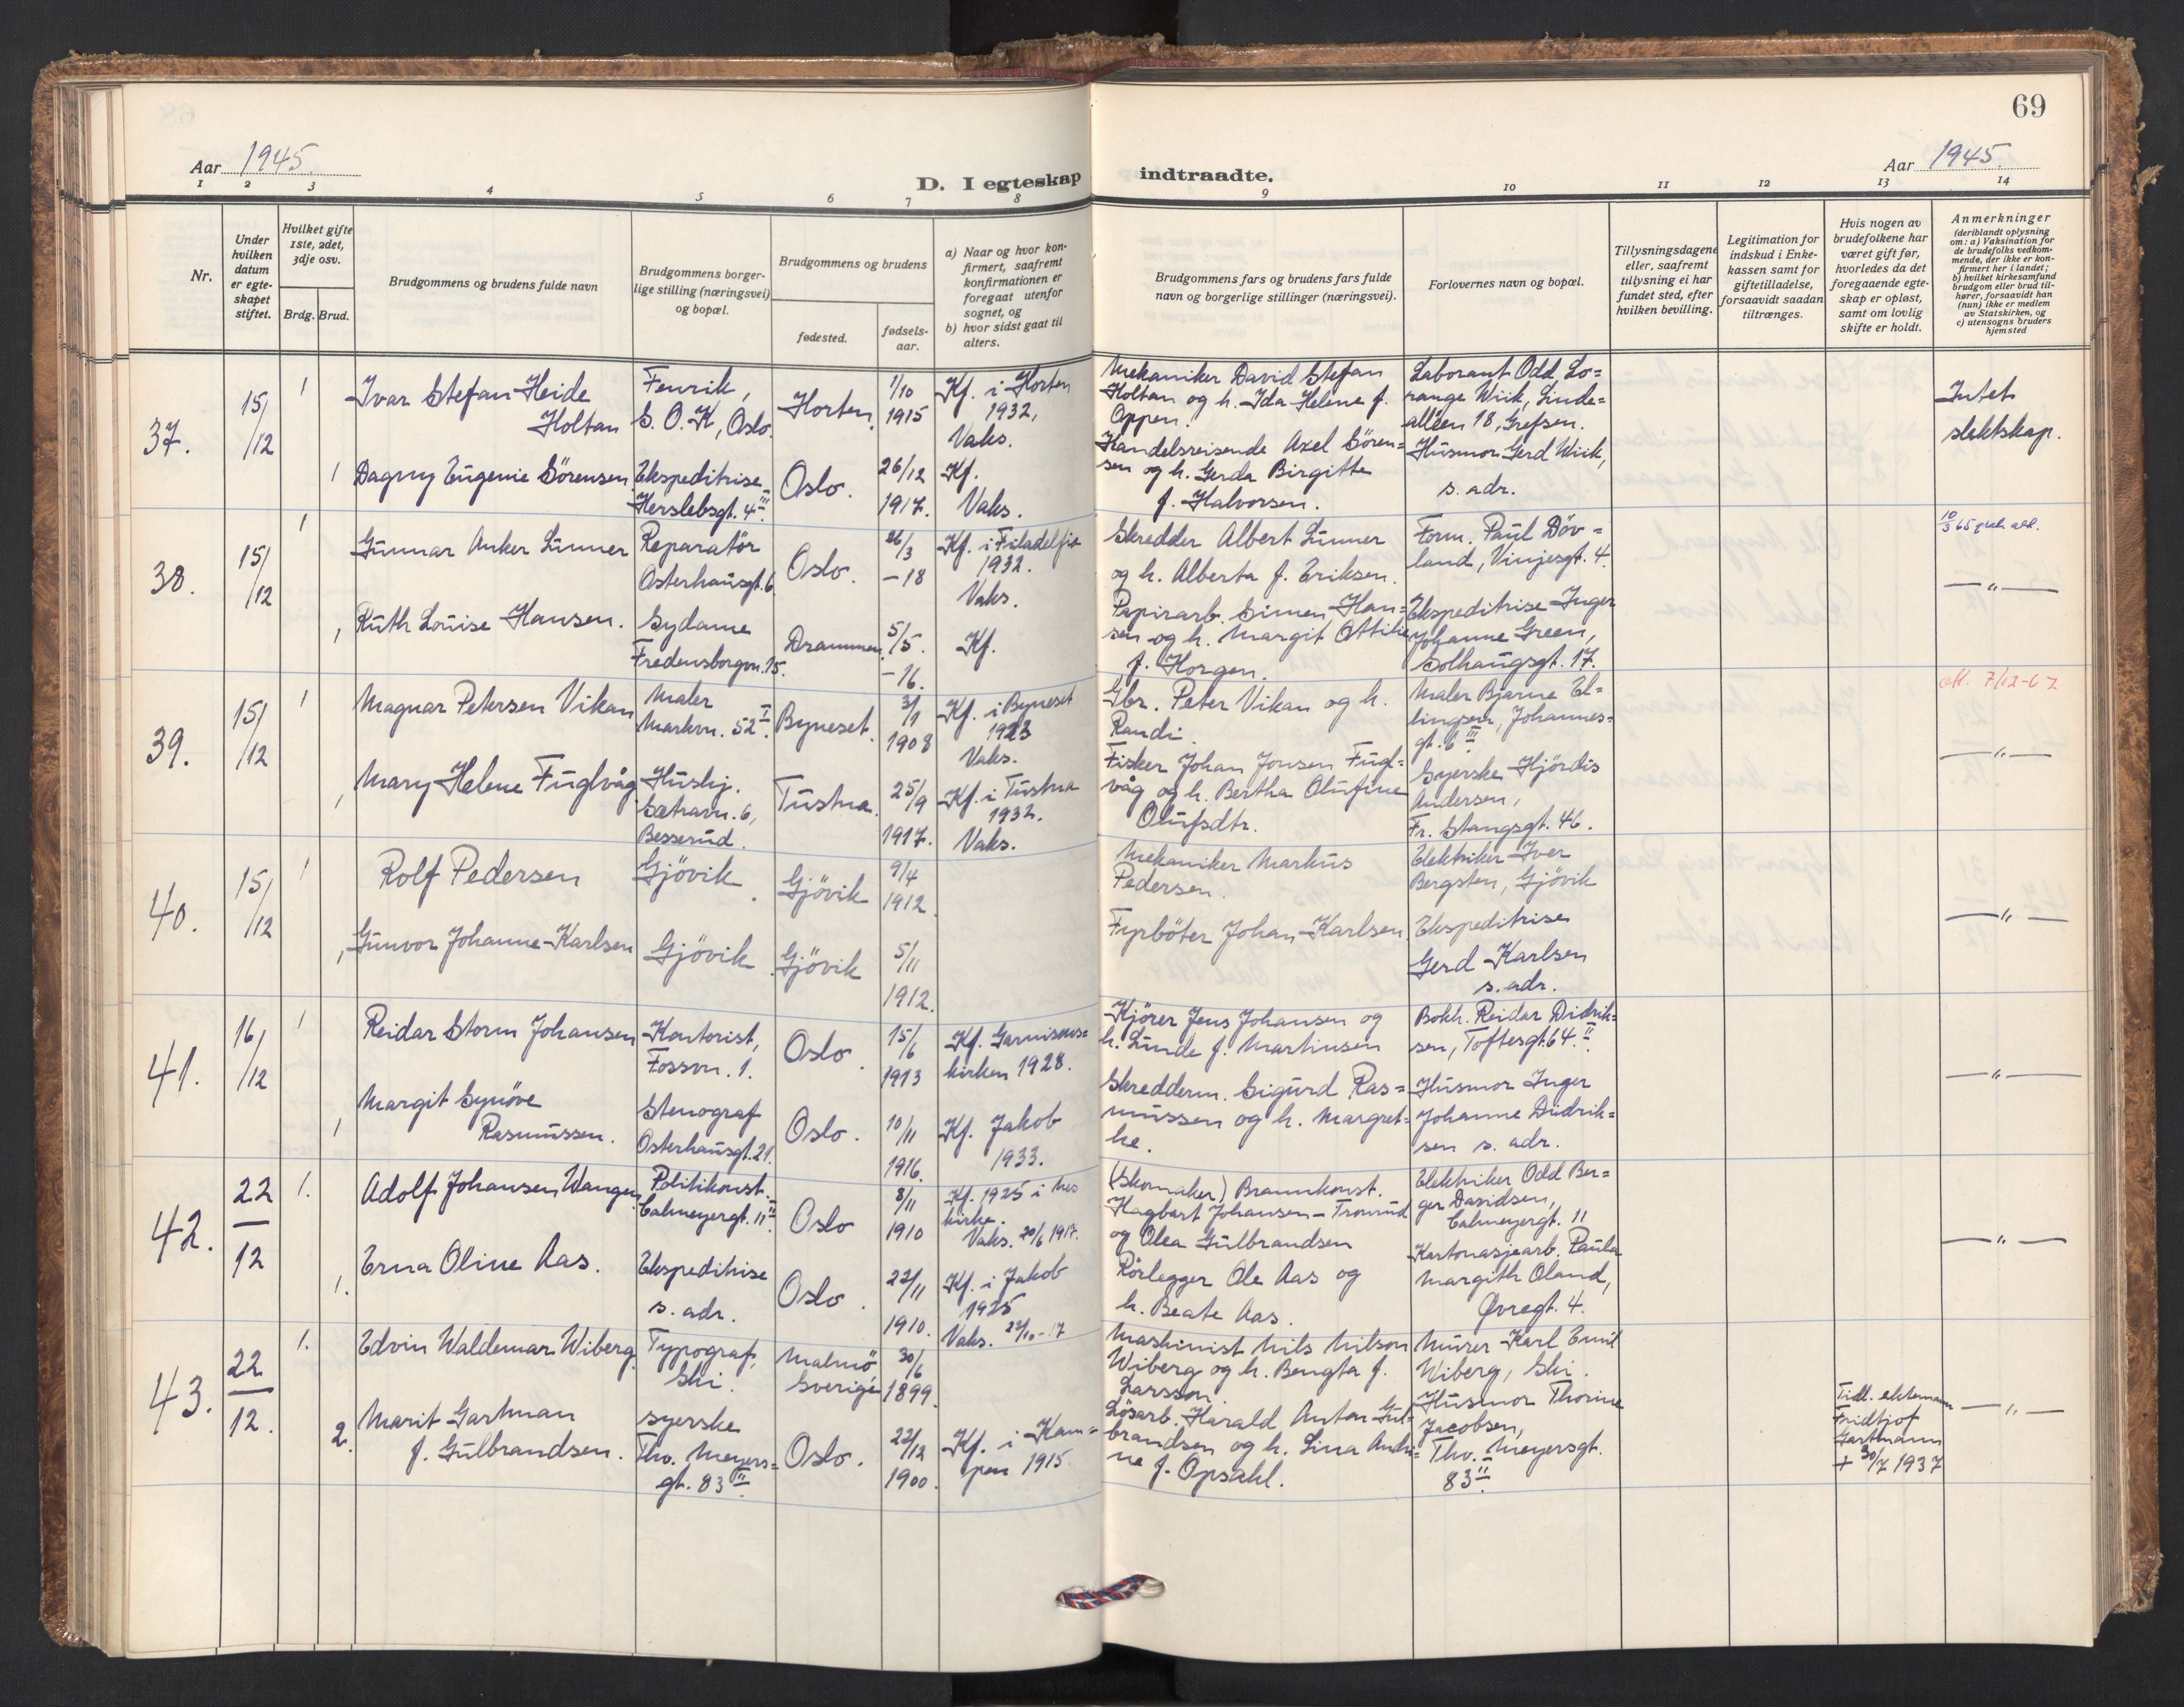 69
Aar 1945.
D. I egteskap indtraadte.
Aar 1945.
1 2 3 4 5 6 7 8 9 10 11 12 13 14
Nr.
Under hvilken datum er egte-skapet stiftet.
Hvilket gifte 1ste, 2det, 3dje osv.
Brdg. Brud.
Brudgommens og brudens fulde navn
Brudgommens borger-lige stilling (næringsvei) og bopæl.
Brudgommens og brudens
fødested.
fødsels-aar.
a) Naar og hvor kon-firmert, saafremt konfirmationen er foregaat utenfor sognet, og
b) hvor sidst gaat til alters.
Brudgommens fars og brudens fars fulde navn og borgerlige stillinger (næringsvei).
Forlovernes navn og bopæl.
Tillysningsdagene eller, saafremt tillysning ei har fundet sted, efter hvilken bevilling.
Legitimation for indskud i Enke-kassen samt for giftetilladelse, forsaavidt saadan tiltrænges.
Hvis nogen av brudefolkene har været gift før, hvorledes da det foregaaende egte-skap er opløst, samt om lovlig skifte er holdt.
Anmerkninger (deriblandt oplysning om: a) Vaksination for de brudefolks vedkom-mende, der ikke er kon-firmert her i landet; b) hvilket kirkesamfund brudgom eller brud til-hører, forsaavidt han (hun) ikke er medlem av Statskirken, og c) utensogns bruders hjemsted
37.
15/12
1
Ivar Stefan Heide
Holtan
Fenrik,
S. O. K, Oslo.
Horten.
1/10
1915
Kf. i Horten
1932,
Vaks.
Mekaniker David Stefan
Holtan og h. Ida Helene f.
Oppen.
Laborant Odd Lo=
range Wiik, Linde=
alléen 18, Grefsen.
Intet
slektskap.
1
Dagny Eugenie Sörensen
Ekspeditrise
Herslebsgt. 4 III.
Oslo.
26/12
1917.
Kf.
Vaks.
Handelsreisende Axel Sören=
sen og h. Gerda Birgitte
f. Halvorsen.
Husmor Gerd Wiik,
s. adr.
38.
15/12
1
Gunnar Anker Linner
Reparatör
Osterhausgt. 6.
Oslo.
26/3
-18
Kf. i Filadelfia
1932.
Vaks.
Skredder Albert Linner
og h. Alberta f. Eriksen.
Form. Paul Döv=
land, Vinjesgt. 4.
— " —
1
Ruth Louise Hansen.
Sydame
Fredensborgvn. 15.
Drammen.
5/5.
-16.
Kf.
Papirarb. Simen Han=
sen og h. Margit Ottilie
f. Horgen.
Ekspeditrise Inger
Johanne Green,
Solhaugsgt. 17.
39.
15/12
1
Magnar Petersen Vikan
Maler
Markvn. 52 I.
Byneset.
3/1
1908
Kf. i Byneset
1923
Vaks.
Gbr. Peter Vikan og h.
Randi.
Maler Bjarne El=
lingsen, Johannes=
gt. 6 III
att. 7/12-62
— " —
1
Mary Helene Fuglvåg
Hushj.
Sætravn. 6,
Besserud.
Tustna.
25/9
1917.
Kf. i Tustna
1932.
Vaks.
Fisker Johan Jonsen Fugl=
våg og h. Bertha Olufine
Olufsdtr.
Syerske Hjördis
Andersen,
Fr. Stangsgt. 46.
40.
15/12
1
Rolf Pedersen
Gjövik.
Gjövik
9/4
1912.
Mekaniker Markus
Pedersen.
Elektriker Iver
Bergsten, Gjövik
— " —
1
Gunvor Johanne Karlsen
Gjövik
Gjövik
5/11
1912.
Fyrböter Johan Karlsen.
Ekspeditrise
Gerd Karlsen
s. adr.
41.
16/12
1
Reidar Storm Johansen
Kontorist,
Fossvn. 1.
Oslo.
15/6
1913
Kf. Garnisons=
kirken 1928.
Kjörer Jens Johansen og
h. Linde f. Martinsen
Bokh. Reidar Didrik=
sen, Toftesgt. 64. II
— " —
1
Margit Synöve
Rasmussen.
Stenograf
Osterhausgt. 21.
Oslo.
10/11
1916.
Kf. Jakob
1933.
Skredderm. Sigurd Ras=
mussen og h. Margret=
he.
Husmor Inger
Johanne Didrik=
sen s. adr.
42.
22/12
1.
Adolf Johansen Wangen
Politikonst.
Calmeyergt. 11 II.
Oslo
8/11
1910
Kf. 1925 i Nes
kirke.
Vaks. 20/6 1917.
(Skomaker) Brannkonst.
Hagbart Johansen-
og Olea Gulbrandsen
Elektriker Odd Ber=
ger Davidsen,
Calmeyergt. 11
— " —
1.
Erna Oline Aas.
Ekspeditrise
s. adr.
Oslo.
22/11
1910.
Kf. i Jakob
1925
Vaks. 22/10-17
Rörlegger Ole Aas og
h. Beate Aas.
Kartonasjearb. Paula
Margith Oland,
Øvregt. 4.
43.
22/12.
1.
Edvin Waldemar Wiberg.
Typograf,
Ski.
Malmö
Sverige
30/6
1899.
Maskinist Nils Nilson
Wiberg og h. Bengta f.
Larsson.
Murer Karl Emil
Wiberg, Ski.
— " —
2.
Marit Gartman
f. Gulbrandsen.
syerske
Thv. Meyers=
gt. 83 II.
Oslo.
22/12
1900.
Kf. i Kam=
pen 1915.
Lösarb. Harald Anton Gul=
brandsen og h. Lina Andri=
ne f. Opsahl.
Husmor Thorine
Jacobsen,
Thv. Meyersgt.
83 II.
Tidl. ektemann
Fridtjof
Gartmann
+ 30/7 1937